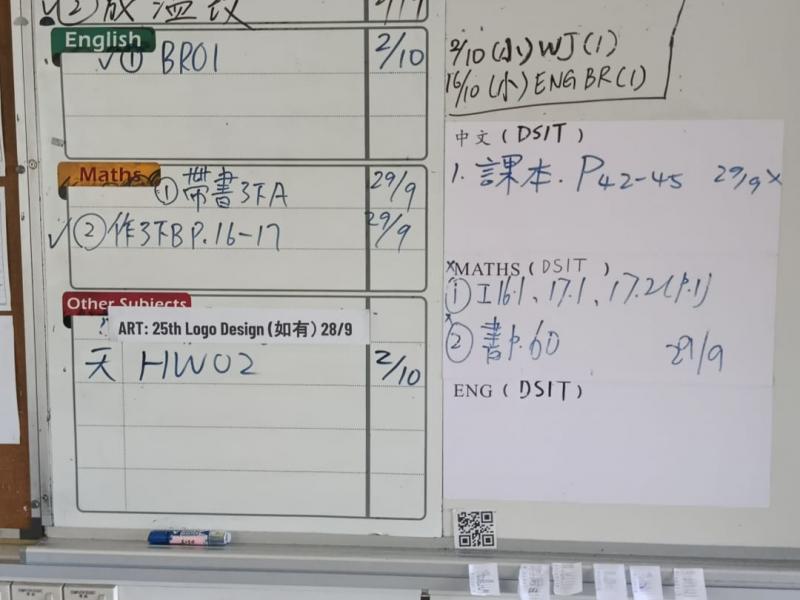 ② 成
English
✓① BR01 2/10
Maths
① 帶書3下A 29/9
✓② 作3下B P.16-17 29/9
Other Subjects
ART: 25th Logo Design (如有) 28/9
天 HW02 2/10
2/10 (小) WJ(1)
16/10 (小) ENG BR(1)
中文 ( DSIT )
1. 課本. P42-45 29/9 x
x MATHS ( DSIT )
① 工16.1、17.1、17.2(P.1)
x
② 書P.60 29/9
ENG ( DSIT )